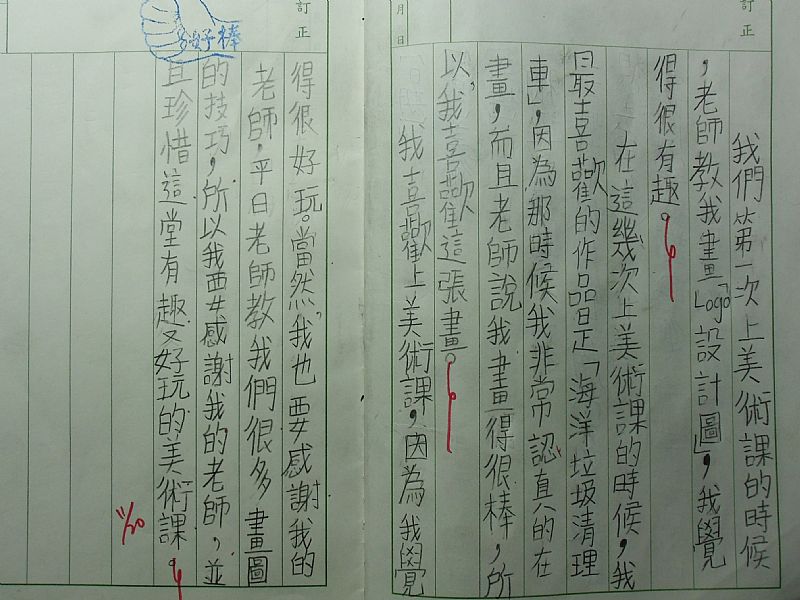 訂正
月 日
訂正
好棒
我們第一次上美術課的時候
，老師教我畫「Logo設計圖」，我覺
得很有趣。
在這幾次上美術課的時候，我
最喜歡的作品是「海洋垃圾清理
車」，因為那時候我非常認真的在
畫，而且老師說我畫得很棒，所
以，我喜歡這張畫。
我喜歡上美術課，因為我覺
得很好玩。當然，我也要感謝我的
老師，平日老師教我們很多畫圖
的技巧，所以我要感謝我的老師，並
且珍惜這堂有趣又好玩的美術課。
11/30